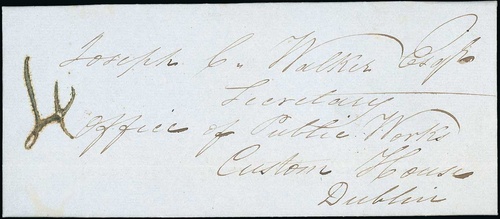 Joseph C. Walker Esqr
Secretary
Office of Public Works
Custom House
Dublin